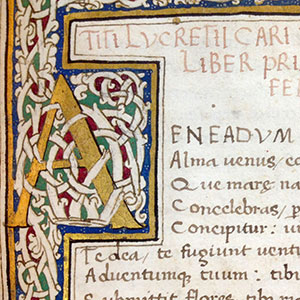 TITI LVCRETII CARI
LIBER PRI
FE
AENEADVM
Alma venus, c
Que mare na
Concelebras, p
Concipitur: ui
Te dea, te fugiunt venti
Aduentumque tuum: tibi
Submittit flores, tibi